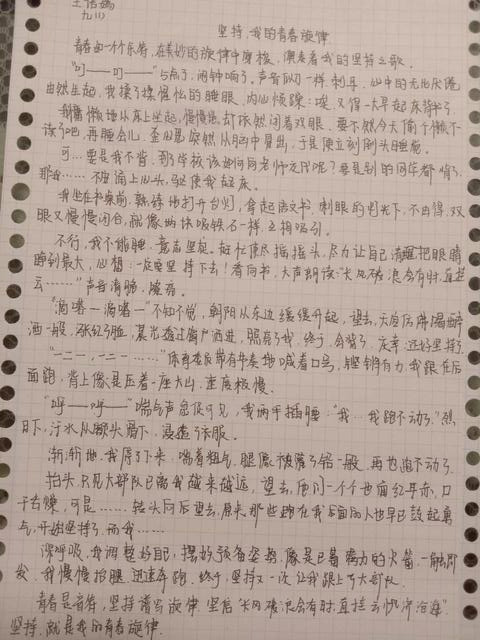 王佳嫣
九(1)
坚持,我的青春旋律
青春如一个个乐符,在美妙的旋律中摩梭,演奏着我的坚持之歌。
"叮——叮——"5点了,闹钟响了。声音似刀一样刺耳,心中的无比厌倦
由然生起,我揉了揉惺忪的睡眼,内心烦躁:唉,又得一大早起床背书了。
懒懒地从床上坐起,慢慢悠悠,却依然闭着双眼。要不然今天偷个懒不
读了吧,再睡会儿,歪心思突然从脑中冒出,于是便立刻倒头睡躺。
可…要是我不背,到学校该如何向老师交代呢?要是别的同学都背了,
那我……不敢涌上心头,驱使我起床。
我坐在书桌前,熟练地打开台灯,拿起语文书,刺眼的灯光下,不由得,双
眼又慢慢闭合,就像两块吸铁石一样,互相吸引。
不行,我不能睡,意志坚定。赶忙使尽摇摇头,尽力让自己清醒把眼睛
睁到最大,心想:一定要坚持下去!看向书,大声朗读:"长风破浪会有时,直挂
云……"声音清脆,嘹亮。
"滴嗒—滴嗒—"不知不觉,朝阳从东边缓缓升起,望去,天启后 喝醉
酒一般,张红了脸,晨光透过窗户洒进,照亮了我,终于,会背了,庆幸,还好坚持了。
"一二一,一二一……"体育委员带有节奏地喊着口号,铿锵有力,我跟在后
面跑,背上像是压着一座大山,速度极慢。
"呼——呼——"喘气声急促可见,我两手插腰:"我…我跑不动了。"烈
日下,汗水从额头滑下,浸透了衣服。
渐渐地,我停了下来,喘着粗气,腿像被灌了铅一般,再也跑不动了。
抬头,只见大部队已离我越来越远,望去,他们一个个也面红耳赤,口
干舌燥,可是……转头向后望去,原来那些跑在我后面的人也早已鼓起勇
气,开始坚持了,而我……
深呼吸,我调整好自己,摆好预备姿势,像是已蓄满力的火箭,一触即
发,我慢慢抬腿,迅速奔跑,终于,坚持又一次让我跟上了大部队。
青春是音符,坚持谱写旋律,坚信"长风破浪会有时,直挂云帆济沧海"。
坚持,就是我的青春旋律。